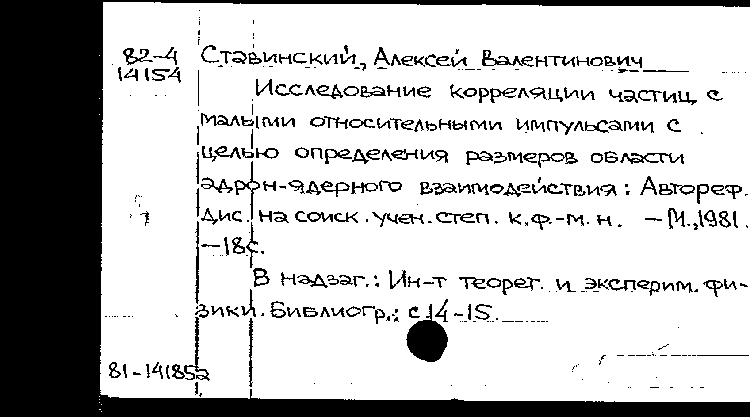 82-4 Ставинский, Алексей Валентинович
14154
Исследование корреляции частиц с
малыми относительными импульсами с
целью определения размеров области
адрон-ядерного взаимодействия: Автореф.
дис. на соиск. учен. степ. к.ф.-м.н. — М., 1981.
—18с.
В надзаг.: Ин-т теорет. и эксперим. фи-
зики. Библиогр.: с.14-15.
81-141852